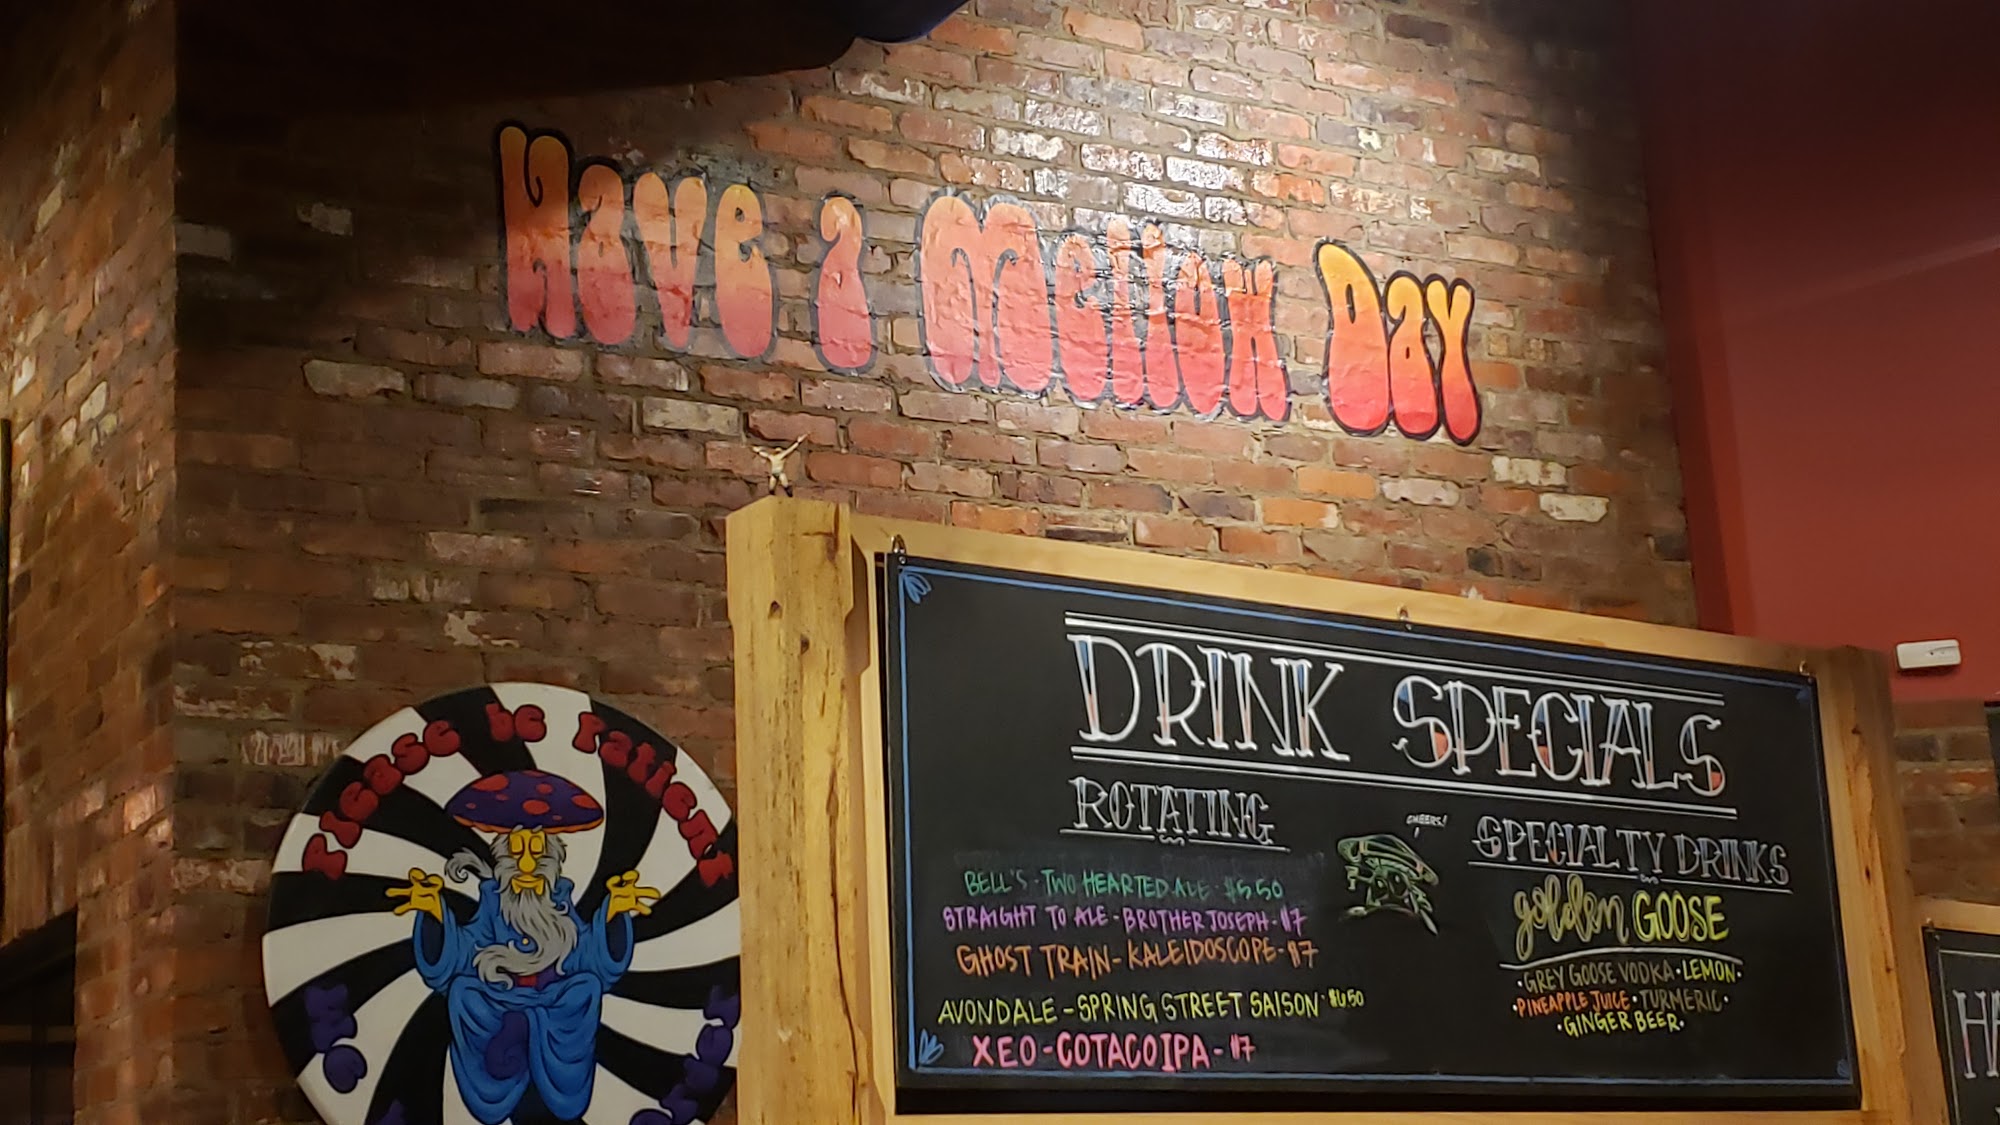 Have a Mellow Day
Please be Patient
DRINK SPECIALS
ROTATING
BELL'S - TWO HEARTED ALE - $5.50
STRAIGHT TO ALE - BROTHER JOSEPH - $7
GHOST TRAIN - KALEIDOSCOPE - $7
AVONDALE - SPRING STREET SAISON - $6.50
XEO - COTACO IPA - $7
CHEERS!
SPECIALTY DRINKS
golden GOOSE
·GREY GOOSE VODKA·LEMON·
·PINEAPPLE JUICE·TURMERIC·
·GINGER BEER·